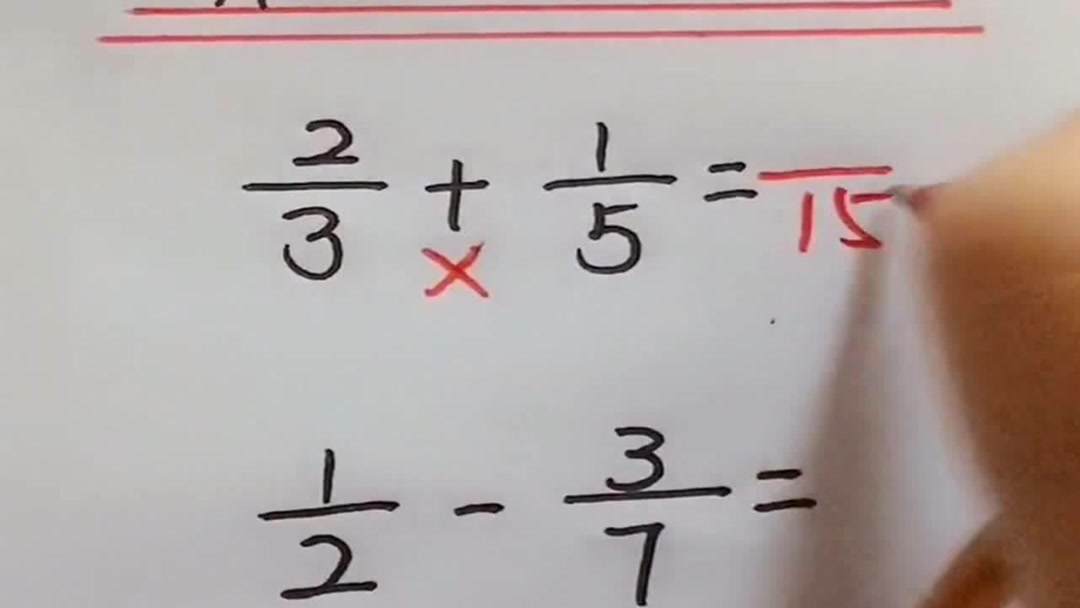 2/3 + 1/5 = /15
×
1/2 - 3/7 =